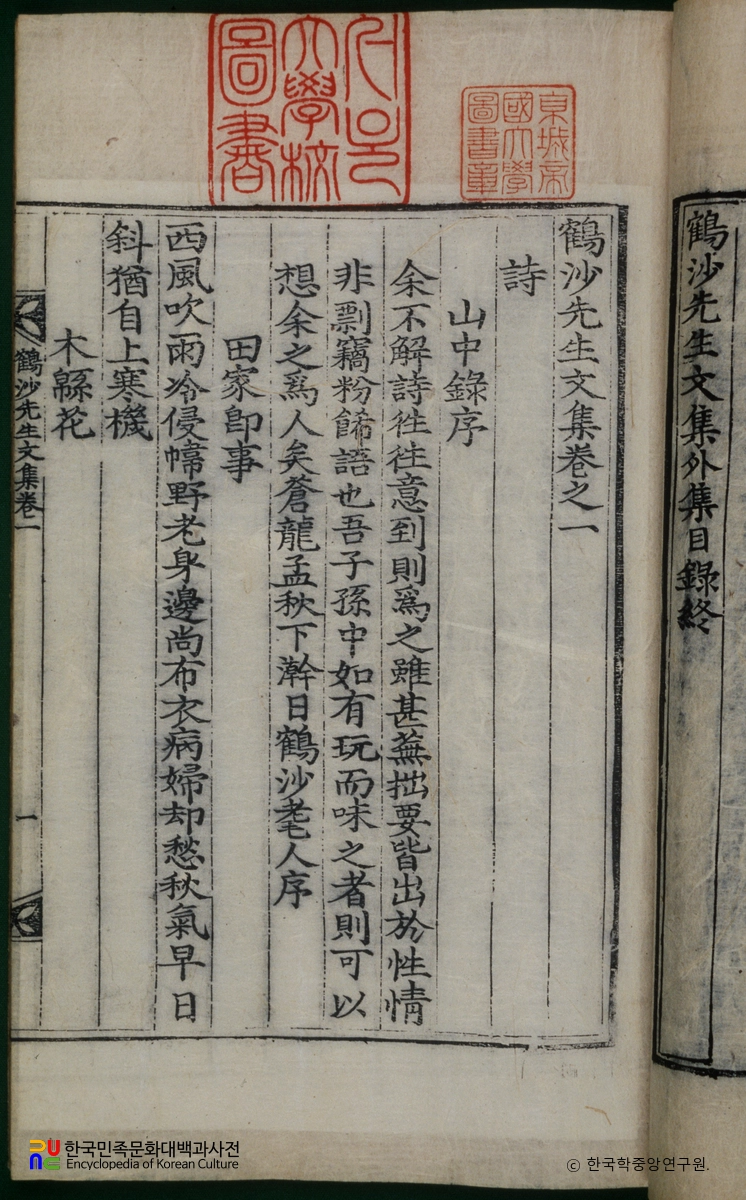 鶴沙先生文集外集目錄終
鶴沙先生文集卷之一
詩
山中錄序
余不解詩徃徃意到則爲之雖甚蕪拙要皆出於性情
非剽竊粉餙語也吾子孫中如有玩而味之者則可以
想余之爲人矣蒼龍孟秋下澣日鶴沙耄人序
田家卽事
西風吹雨冷侵幃野老身邊尙布衣病婦却愁秋氣早日
斜猶自上寒機
木緜花
鶴沙先生文集卷一
一
京城帝
國大學
圖書章
大學校
圖書
한국민족문화대백과사전
Encyclopedia of Korean Culture
© 한국학중앙연구원